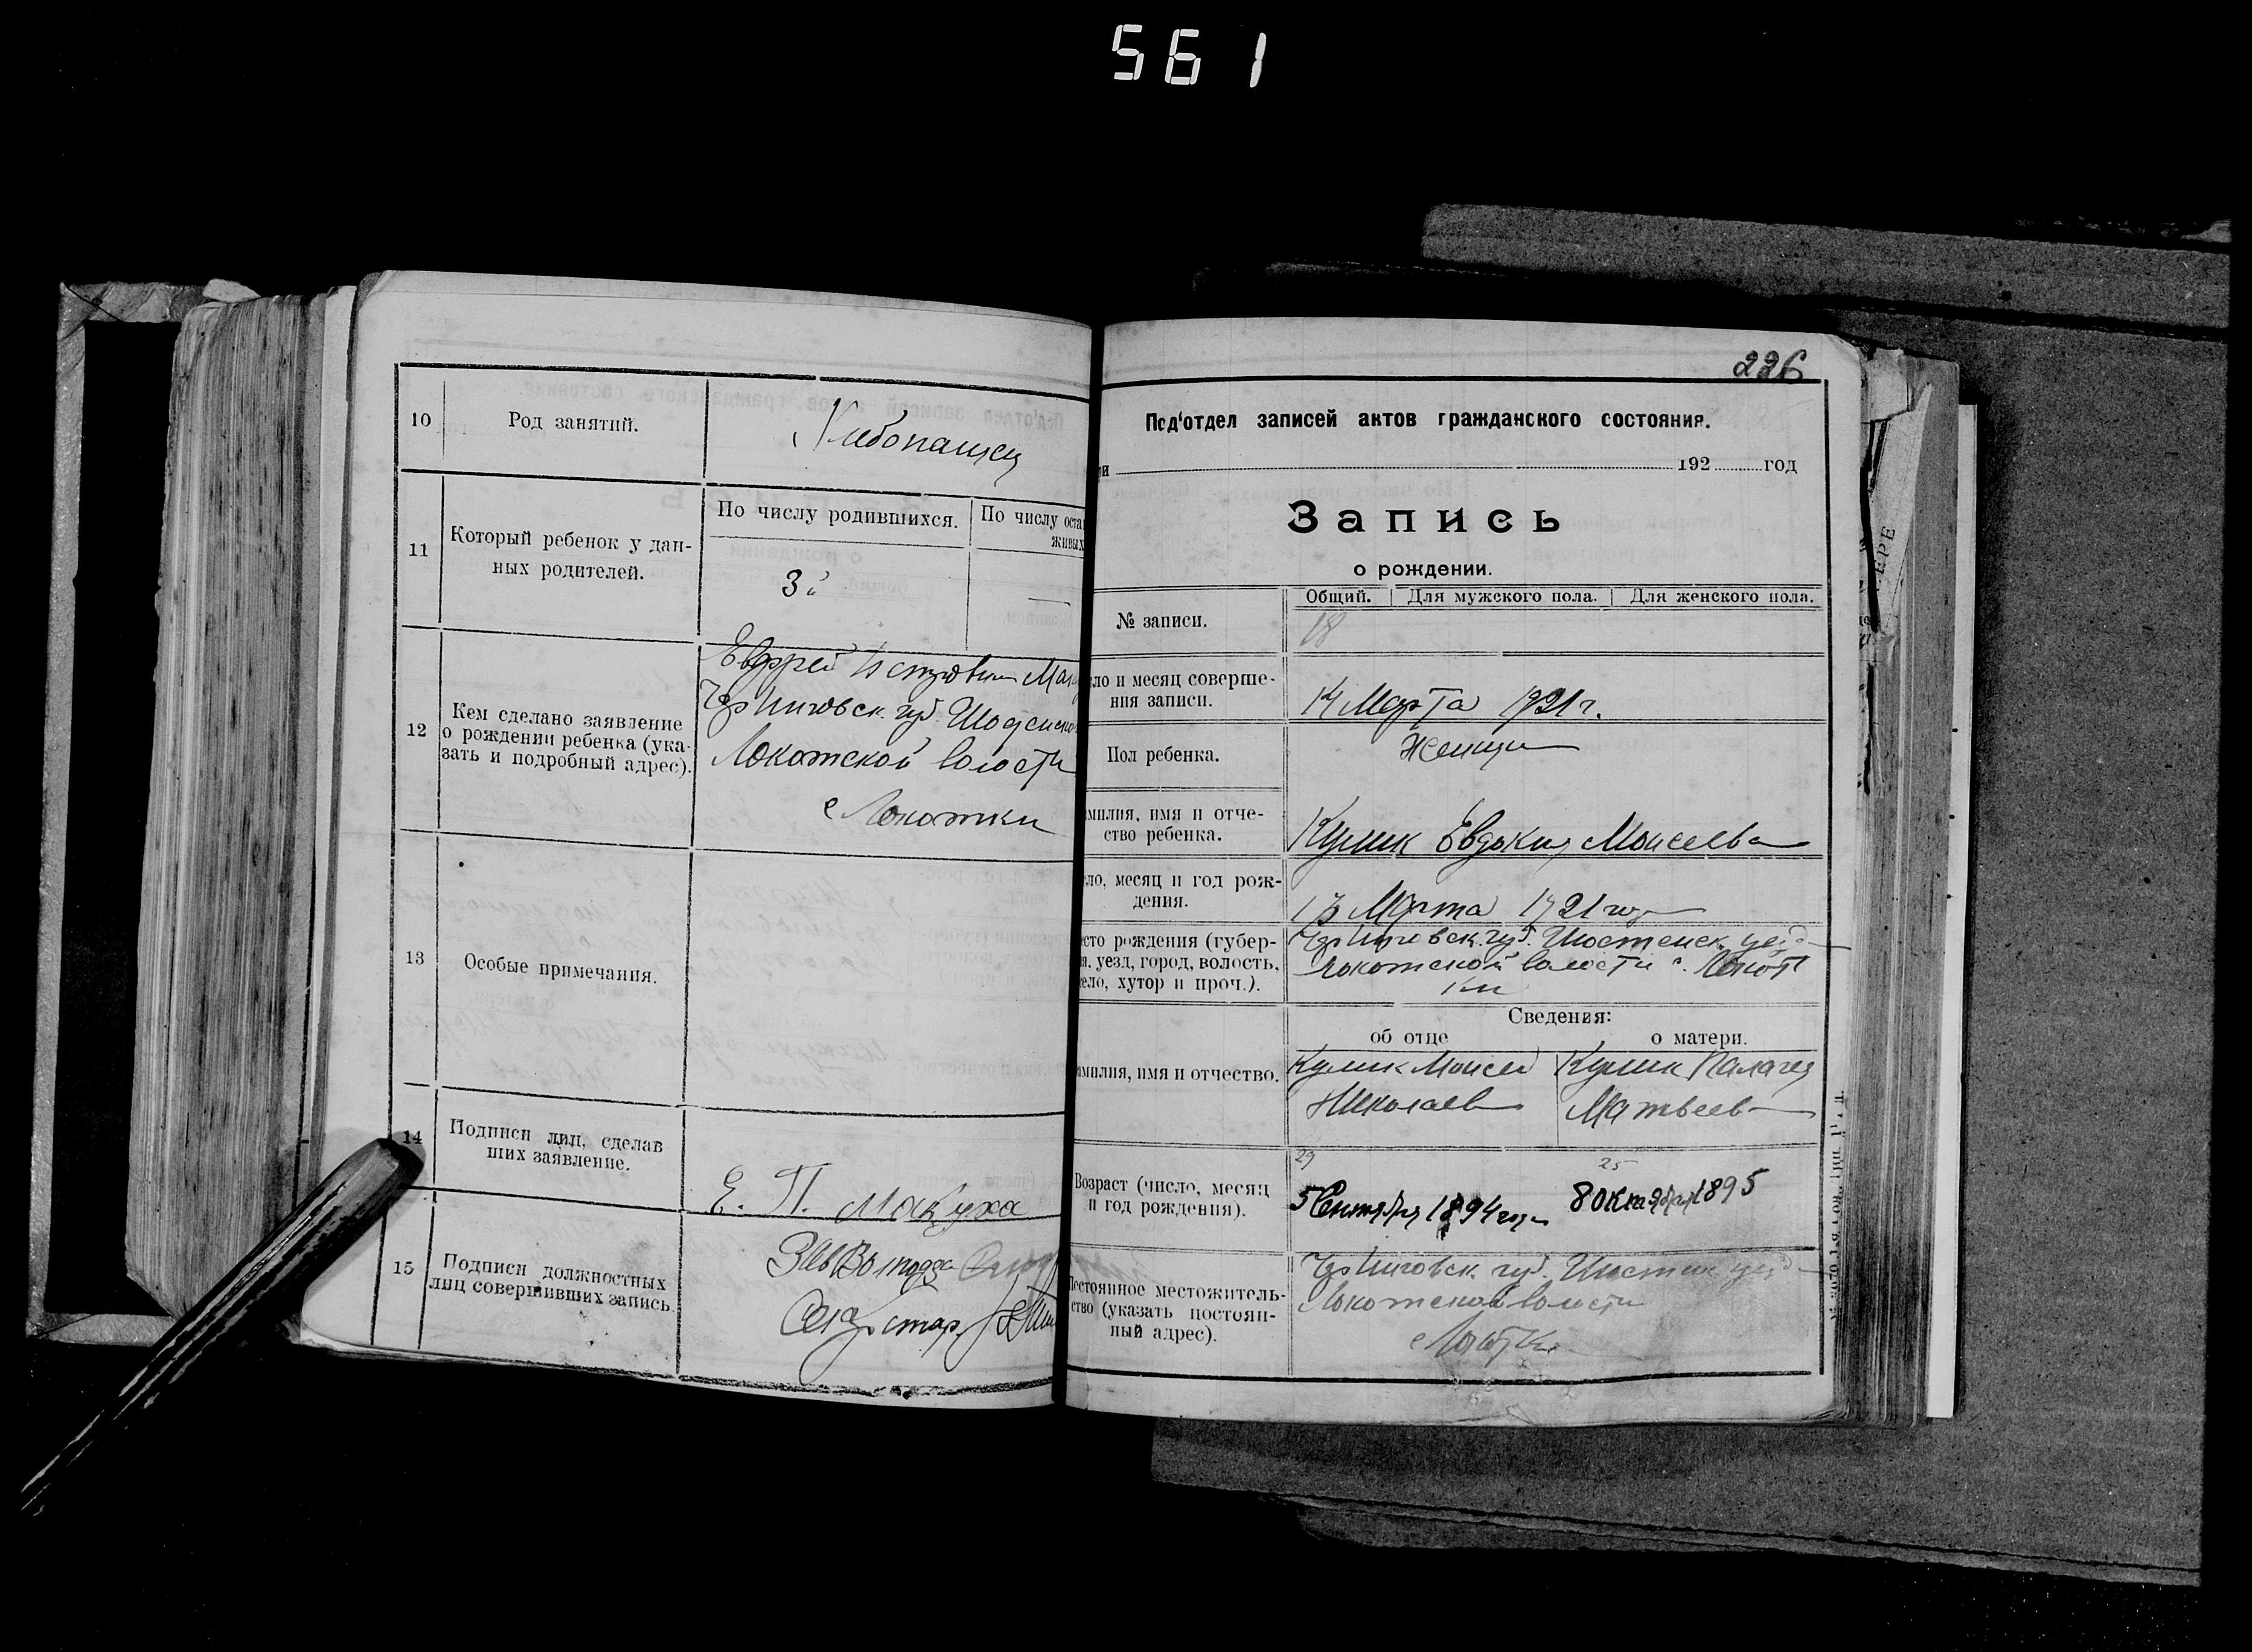 561
10
Род занятий.
Хлебопашец
11
Который ребенок у дан-
ных родителей.
По числу родившихся.
По числу оста
живых
3й
—
12
Кем сделано заявление
о рождении ребенка (ука-
зать и подробный адрес).
Черниговск. губ.
Локотской волости
с Локотки
13
Особые примечания.
14
Подписи лиц, сделав
ших заявление.
Е. П. Макуха
15
Подписи должностных
лиц совершивших запись.
226
Под'отдел записей актов гражданского состояния.
ри 192 год
Запись
о рождении.
№ записи.
Общий. Для мужского пола. Для женского пола.
18
ло и месяц соверше-
ния записи.
14 Марта 1921 г.
Пол ребенка.
Женщи
милия, имя и отче-
ство ребенка.
Кулик Евдокия Моисеева
ло, месяц и год рож-
дения.
13 Марта 1921 год
есто рождения (губер-
я. уезд, город, волость,
село, хутор и проч.).
Черниговск. губ. Шостенск. уезд
Локотской волости с. Локот
ки
Сведения:
об отце о матери.
амилия, имя и отчество.
Кулик Моисей
Николаев
Кулик Палагея
Матвеев
Возраст (число, месяц
и год рождения).
29
5 Сентября 1894 года
25
8 октября 1895
Постоянное местожитель-
ство (указать постоян-
ный адрес).
Черниговск. губ. уезд
Локотской волости
с Локотки